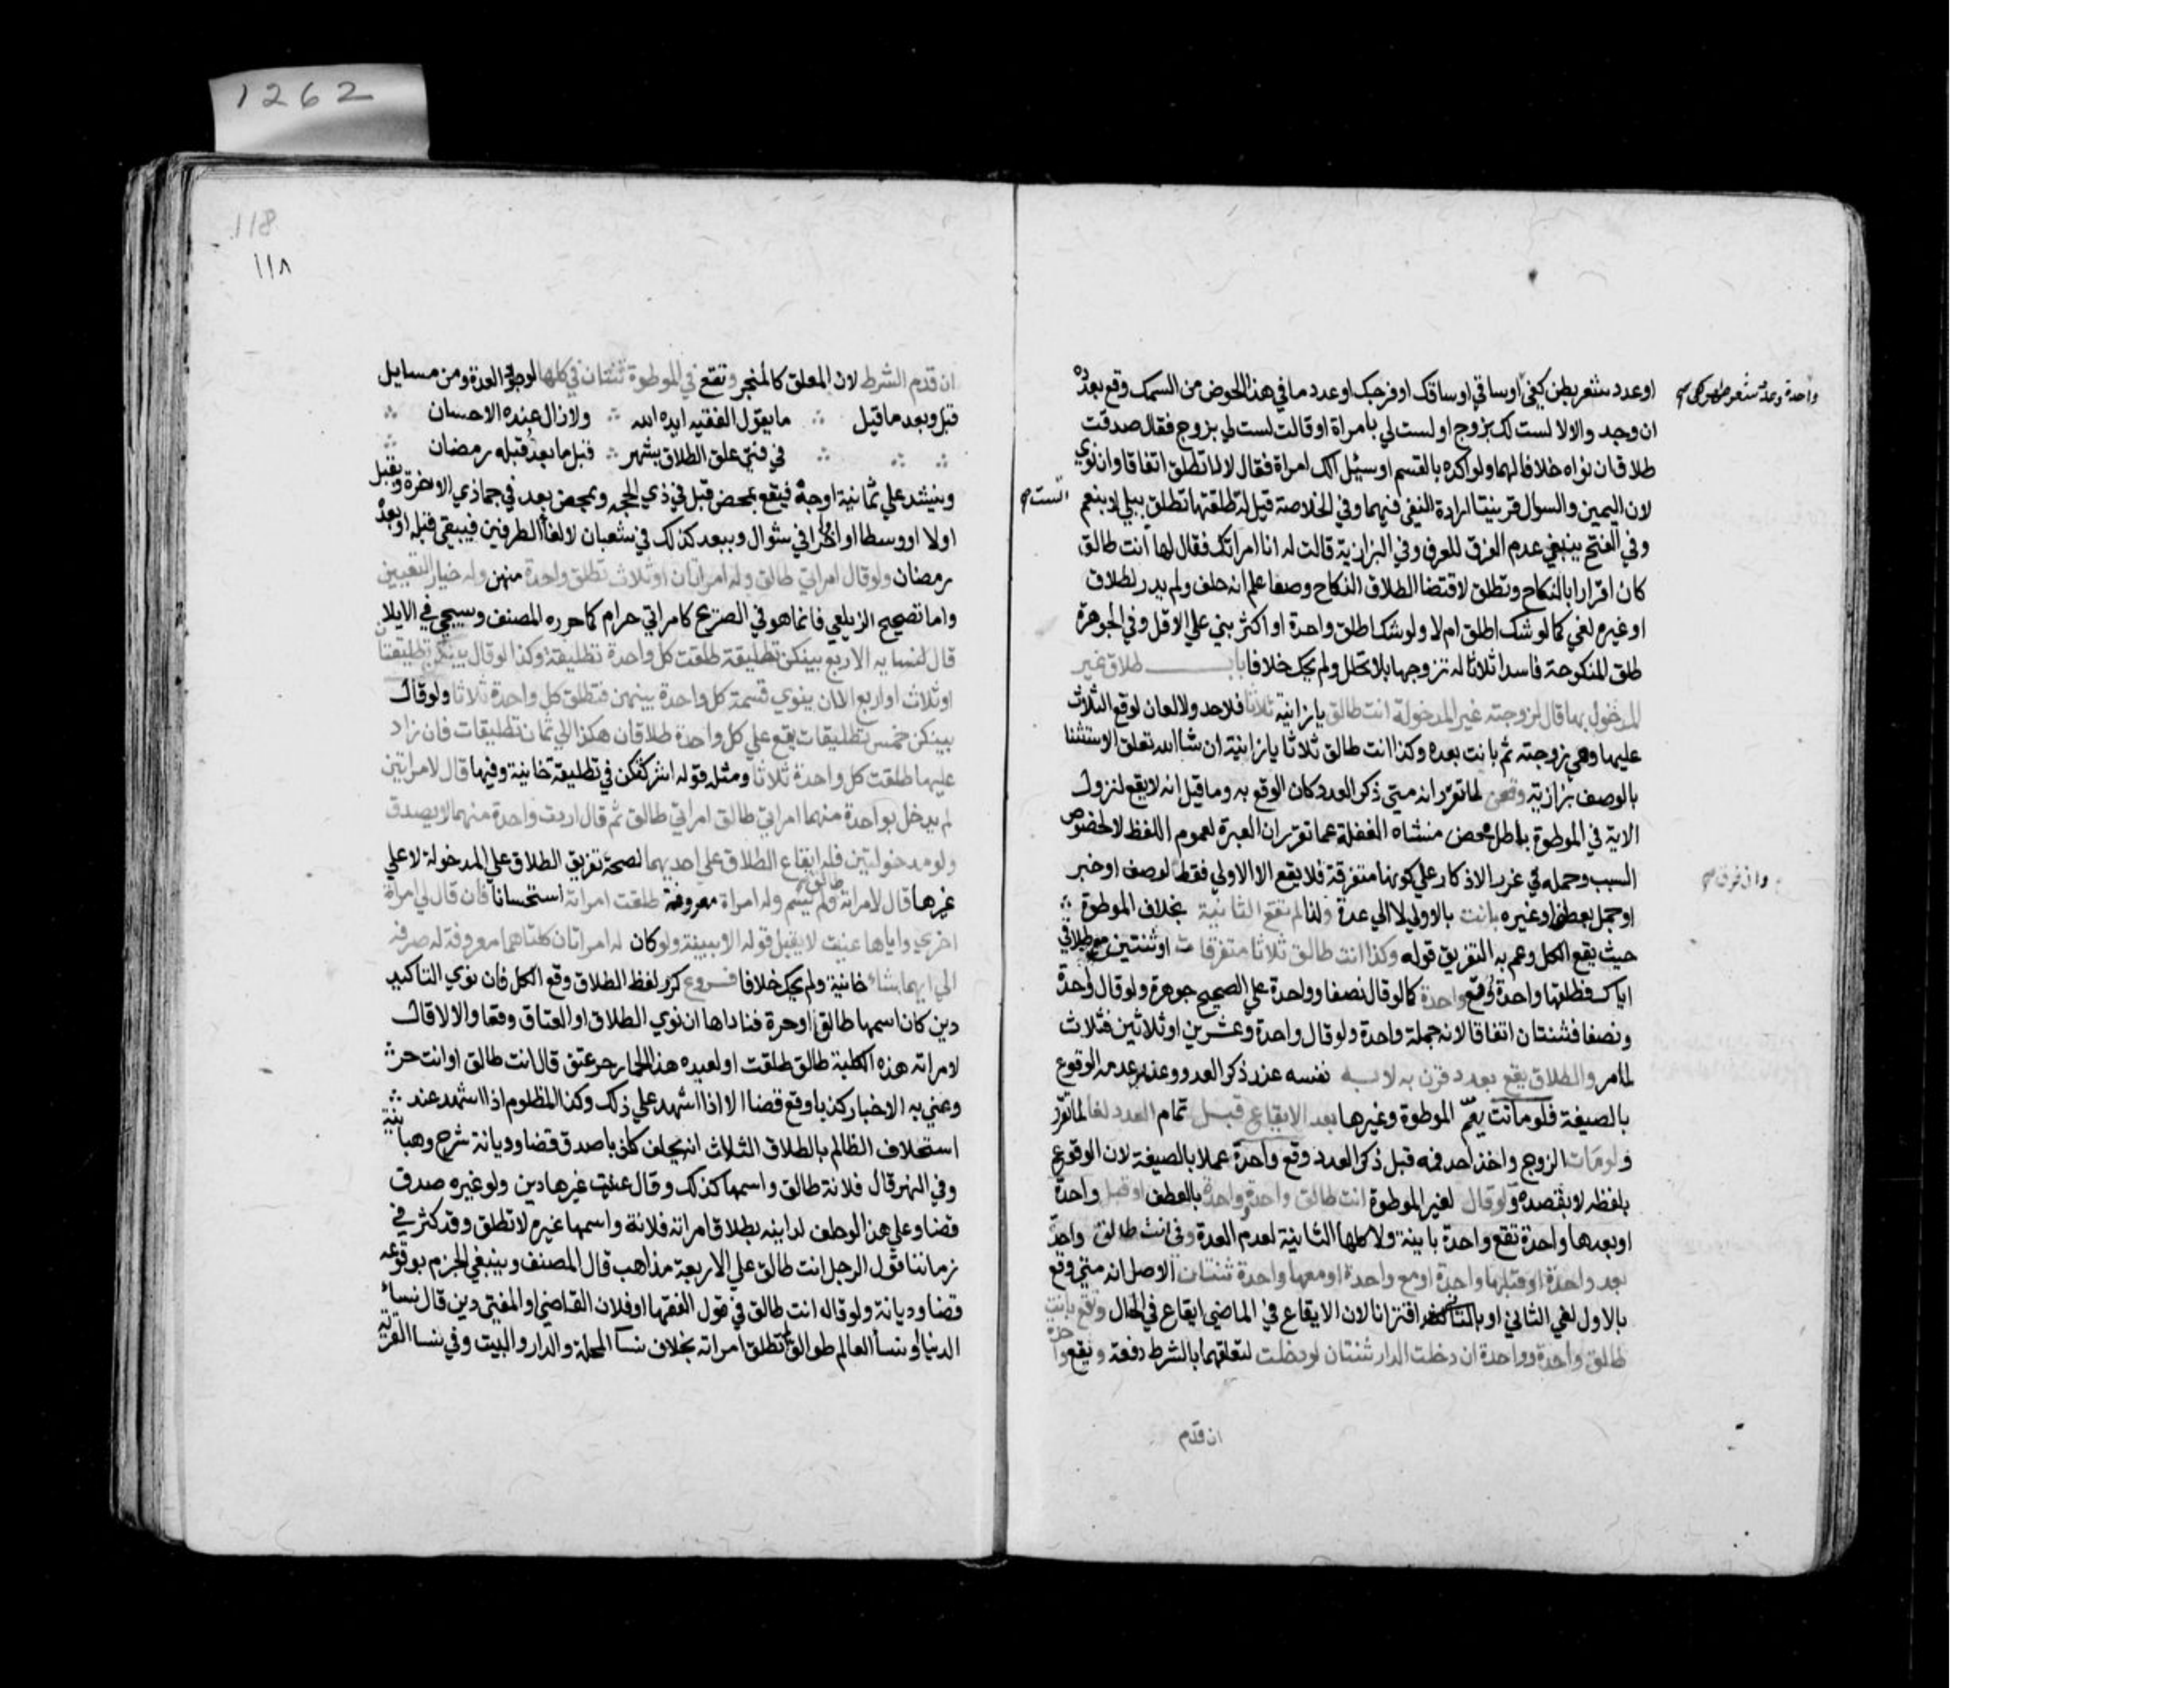 1262
او عدد شعر بطن كفي او ساقي او ساقك او فرجك او عدد ما في هذا الحوض من السمك وقع بعدده
واحدة وعدد شعر ظهر كفي صح
ان وجد والا لا لست لك بزوج او لست لي بامراة او قالت لست لي بزوج فقال صدقت
طلاق ان نواه خلافا لهما ولو اكده بالقسم او سئل الك امراة فقال لا لا تطلق اتفاقا وان نوي
لان اليمين والسوال قرينتا ارادة النفي فيهما وفي الخلاصة قيل له الست طلقتها تطلق ببلي لا بنعم
الست صح
وفي الفتح ينبغي عدم الفرق للعرف وفي البزازية قالت له انا امراتك فقال لها انت طالق
كان اقرارا بالنكاح وتطلق لاقتضا الطلاق النكاح وصفا علم انه حلف ولم يدر بطلاق
او غيره لغي كما لو شك اطلق ام لا ولو شك اطلق واحدة او اكثر بني علي الاقل وفي الجوهرة
طلق المنكوحة فاسدا ثلاثا له تزوجها بلا محلل ولم يحك خلافا باب طلاق غير
المدخول بها قال لزوجته غير المدخولة انت طالق يا زانية ثلاثا فلا حد ولا لعان لوقوع الثلاث
عليها وهي زوجته ثم بانت بعده وكذا انت طالق ثلاثا يا زانية ان شا الله تعلق الاستثنا
بالوصف بزازية وقعن لما تقرر انه متي ذكر العدد كان الوقوع به وما قيل انه لا يقع لنزول
الاية في الموطوة باطل محض منشاه الغفلة عما تقرر ان العبرة لعموم اللفظ لا لخصوص
السبب وحمله في غرر الاذكار علي كونها متفرقة فلا يقع الا الاولي فقط لوصف او خبر
وان فرق صح
او جمل بعطف او غيره بانت بالاولي لا الي عدة ولذا لم تقع الثانية بخلاف الموطوة
حيث يقع الكل وعم به التفريق قوله وكذا انت طالق ثلاثا متفرقات او ثنتين مع طلاقي
اياك فطلقها واحدة وقع واحدة كما لو قال نصفا وواحدة علي الصحيح جوهرة ولو قال واحدة
ونصفا فثنتان اتفاقا لانه جملة واحدة ولو قال واحدة وعشرين او ثلاثين فثلاث
لما مر والطلاق يقع بعدد قرن به لا به نفسه عند ذكر العدد وعند عدمه الوقوع
بالصيغة فلو ماتت يعم الموطوة وغيرها بعد الايقاع قبل تمام العدد لغا لما تقرر
ولو مات الزوج واخذ احد فمه قبل ذكر العدد وقع واحدة عملا بالصيغة لان الوقوع
بلفظه لا بقصده ولو قال لغير الموطوة انت طالق واحدة وواحدة بالعطف او قبل واحدة
او بعدها واحدة تقع واحدة باينة ولا تلحقها الثانية لعدم العدة وفي انت طالق واحدة
بعد واحدة او قبلها واحدة او مع واحدة او معها واحدة ثنتان الاصل انه متي وقع
بالاول لغي الثاني او بالثاني اقترنا لان الايقاع في الماضي ايقاع في الحال وتقع بانت
طالق واحدة وواحدة ان دخلت الدار ثنتان لو دخلت لتعلقهما بالشرط دفعة وتقع واحدة
ان قدم
118
١١٨
ان قدم الشرط لان المعلق كالمنجز وتقع في الموطوة ثنتان في كلها لوجود العدة ومن مسايل
قبل وبعد ما قيل ما يقول الفقيه ايده الله ولا زال عنده الاحسان
في فتي علق الطلاق بشهر قبل ما بعد قبله رمضان
وينشد علي ثمانية اوجه فيقع بمحض قبل في ذي الحجه وبمحض بعد في جمادي الاخرة وبقبل
اولا او وسطا او اخرا في شوال وببعد كذلك في شعبان لالغا الطرفين فيبقي قبله او بعده
رمضان ولو قال امراتي طالق وله امراتان او ثلاث تطلق واحدة منهن وله خيار التعيين
واما تصحيح الزيلعي فانما هو في الصريح كامراتي حرام كما حرره المصنف وسيجي في الايلا
قال لنسايه الاربع بينكن تطليقة طلقت كل واحدة تطليقة وكذا لو قال بينكن تطليقتان
او ثلاث او اربع الا ان ينوي قسمة كل واحدة بينهن فتطلق كل واحدة ثلاثا ولو قال
بينكن خمس تطليقات يقع علي كل واحدة طلاقان هكذا الي ثمان تطليقات فان زاد
عليها طلقت كل واحدة ثلاثا ومثله قوله اشركتكن في تطليقة خانية وفيها قال لامراتين
لم يدخل بواحدة منهما امراتي طالق امراتي طالق ثم قال اردت واحدة منهما لا يصدق
ولو مدخولتين فله ايقاع الطلاق علي احديهما لصحة تفريق الطلاق علي المدخولة لا علي
غيرها قال لامراته طالق ولم يسم وله امراة معروفة طلقت امراته استحسانا فان قال لي امراة
اخري واياها عنيت لا يقبل قوله الا ببينة ولو كان له امراتان كلتاهما معروفة له صرفه
الي ايهما شاء خانية ولم يحك خلافا فروع كرر لفظ الطلاق وقع الكل فان نوي التاكيد
دين كان اسمها طالق او حرة فناداها ان نوي الطلاق او العتاق وقعا والا لا قال
لامراته هذه الكلبة طالق طلقت او لعبده هذا الحمار حر عتق قال انت طالق او انت حر
وعني به الاخبار كذبا وقع قضا الا اذا اشهد علي ذلك وكذا المظلوم اذا اشهد عند
استحلاف الظالم بالطلاق الثلاث انه يحلف كاذبا صدق قضا وديانة شرح وهبانية
وفي النهر قال فلانة طالق واسمها كذلك وقال عنيت غيرها دين ولو غيره صدق
قضا وعلي هذا لو حلف لداينه بطلاق امراته فلانة واسمها غيره لا تطلق وقد كثر في
زماننا قول الرجل انت طالق علي الاربعة مذاهب قال المصنف وينبغي الجزم بوقوعه
قضا وديانة ولو قال انت طالق في قول الفقها او فلان القاضي او المفتي دين قال نساء
الدنيا او نسا العالم طوالق لم تطلق امراته بخلاف نسا المحلة والدار والبيت وفي نسا القرية